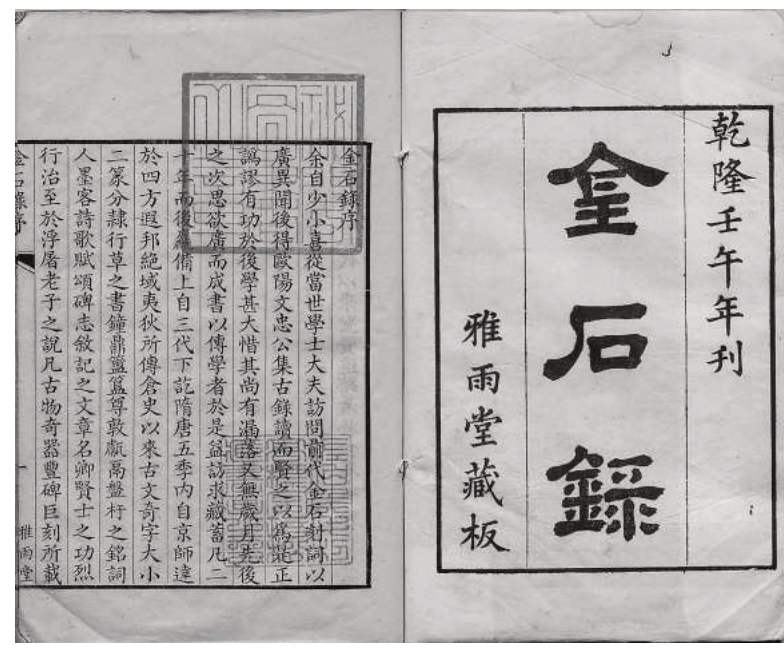 乾隆壬午年刊
金石録
雅雨堂藏板
金石錄序
余自少小喜從當世學士大夫訪問前代金石刻詞以
廣異聞後得歐陽文忠公集古錄讀而賢之以爲是正
譌謬有功於後學甚大惜其尚有漏落又無歲月先後
之次思欲廣而成書以傳學者於是益訪求藏蓄凡二
十年而後麤備上自三代下訖隋唐五季內自京師達
於四方遐邦絶域夷狄所傳倉史以來古文奇字大小
二篆分隷行草之書鐘鼎簠簋尊敦甗鬲盤杅之銘詞
人墨客詩歌賦頌碑志敘記之文章名卿賢士之功烈
行治至於浮屠老子之說凡古物奇器豐碑巨刻所載
金石錄序
一
雅雨堂